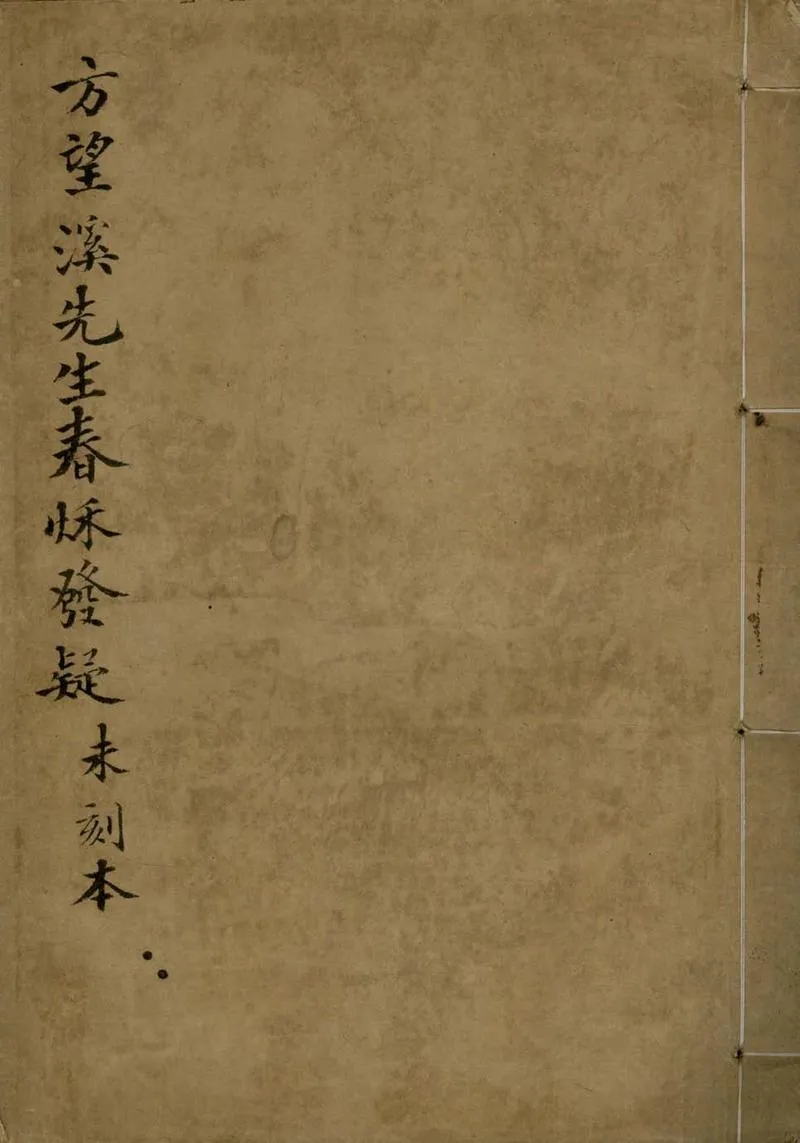 方望溪先生春秌發疑
未刻本